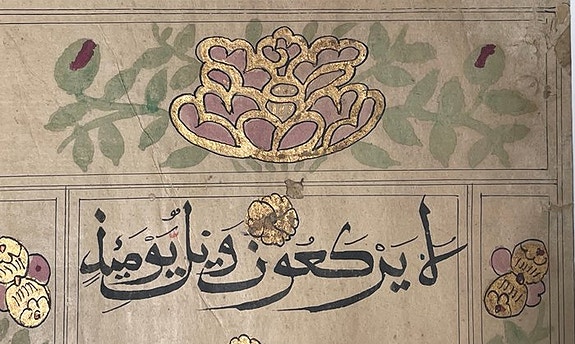 لَا يَرْكَعُونَ وَيْلٌ يَوْمَئِذٍ